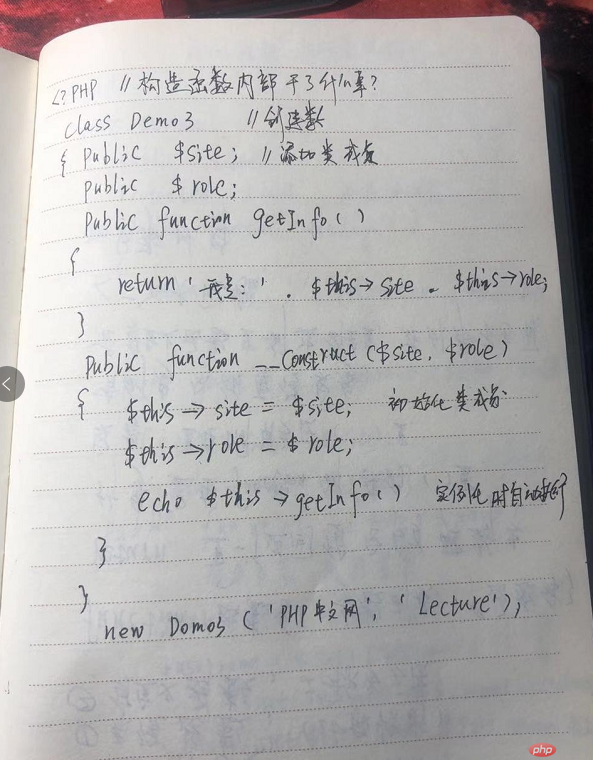 <?PHP //构造函数内部干了什么事?
class Demo3 //创建类
{ public $site; //添加类成员
public $role;
public function getInfo()
{
return '我是:' . $this->site . $this->role;
}
public function __construct($site, $role)
{ $this->site = $site; 初始化类成员
$this->role = $role;
echo $this->getInfo() 实例化时自动执行
}
}
new Domo3 ('PHP中文网', 'Lecture');
php